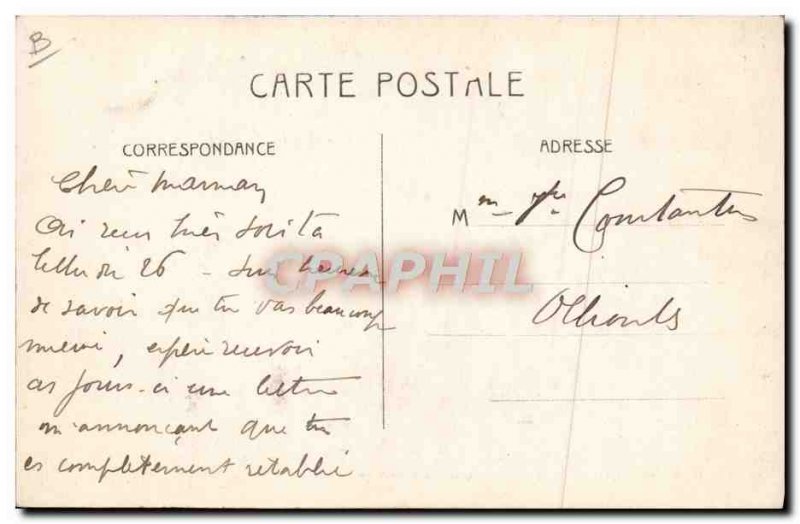 B
CARTE POSTALE
CORRESPONDANCE
Chère Maman
Ai reçu hier soir ta
lettre du 26 - suis heureux
de savoir que tu vas beaucoup
mieux, espère recevoir
ces jours-ci une lettre
m'annonçant que tu
es complètement rétablie
ADRESSE
Mme Vve Constantin
Ollioules
CPAPHIL